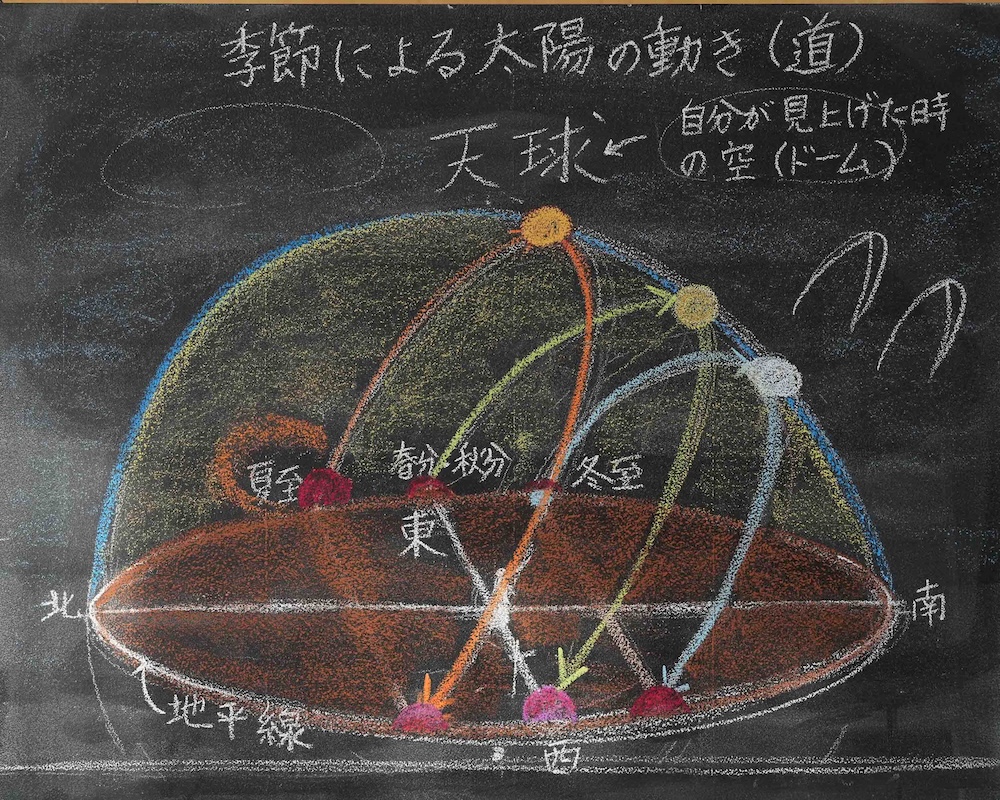 季節による太陽の動き(道)
天球
自分が見上げた時
の空(ドーム)
夏至
春分
秋分
冬至
東
北
南
地平線
西